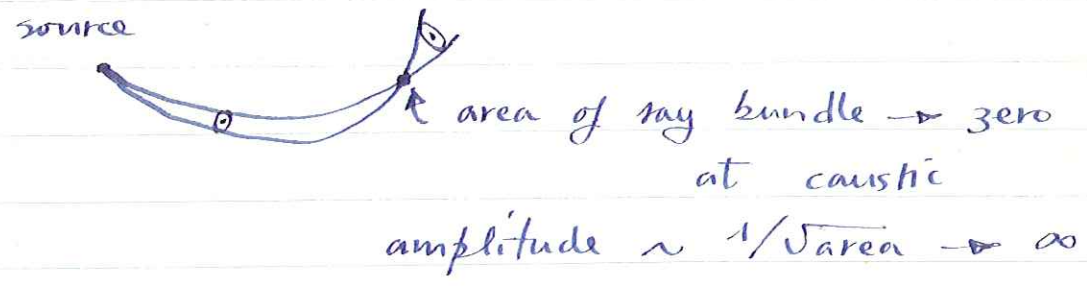 source
area of ray bundle → zero
at caustic
amplitude ~ 1/√area → ∞